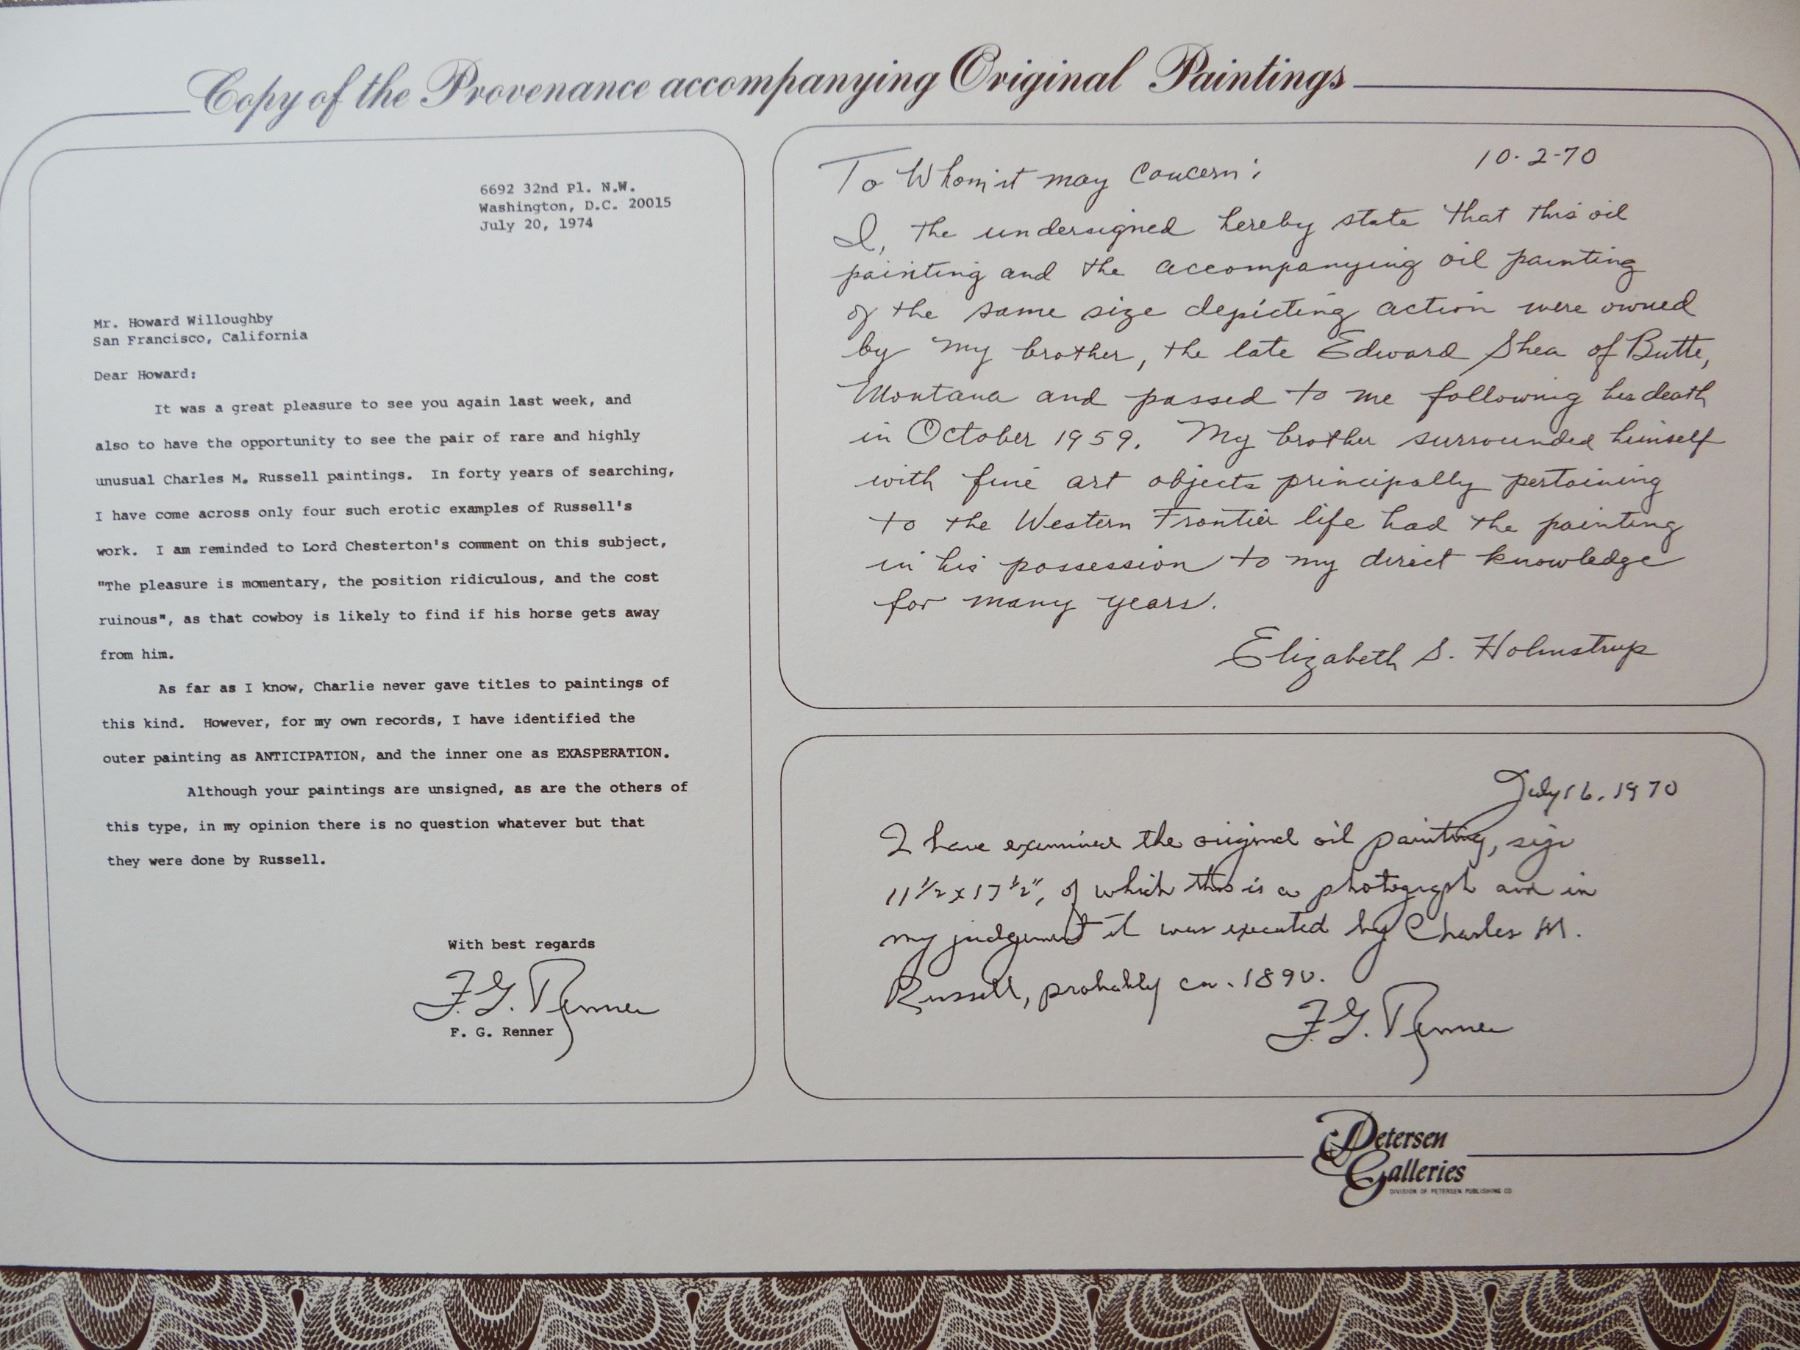 Copy of the Provenance accompanying Original Paintings
6692 32nd Pl. N.W.
Washington, D.C. 20015
July 20, 1974
Mr. Howard Willoughby
San Francisco, California
Dear Howard:
It was a great pleasure to see you again last week, and
also to have the opportunity to see the pair of rare and highly
unusual Charles M. Russell paintings. In forty years of searching,
I have come across only four such erotic examples of Russell's
work. I am reminded to Lord Chesterton's comment on this subject,
"The pleasure is momentary, the position ridiculous, and the cost
ruinous", as that cowboy is likely to find if his horse gets away
from him.
As far as I know, Charlie never gave titles to paintings of
this kind. However, for my own records, I have identified the
outer painting as ANTICIPATION, and the inner one as EXASPERATION.
Although your paintings are unsigned, as are the others of
this type, in my opinion there is no question whatever but that
they were done by Russell.
With best regards
F. G. Renner
F. G. Renner
10-2-70
To Whom it may Concern:
I, the undersigned hereby state that this oil
painting and the accompanying oil painting
of the same size depicting action were owned
by my brother, the late Edward Shea of Butte,
Montana and passed to me following his death
in October 1959. My brother surrounded himself
with fine art objects principally pertaining
to the Western Frontier life had the painting
in his possession to my direct knowledge
for many years.
Elizabeth S. Holmstrup
July 16, 1970
I have examined the original oil painting, size
11 1/2 x 17 1/2", of which this is a photograph and in
my judgement it was executed by Charles M.
Russell, probably ca. 1890.
F. G. Renner
Petersen
Galleries
DIVISION OF PETERSEN PUBLISHING CO